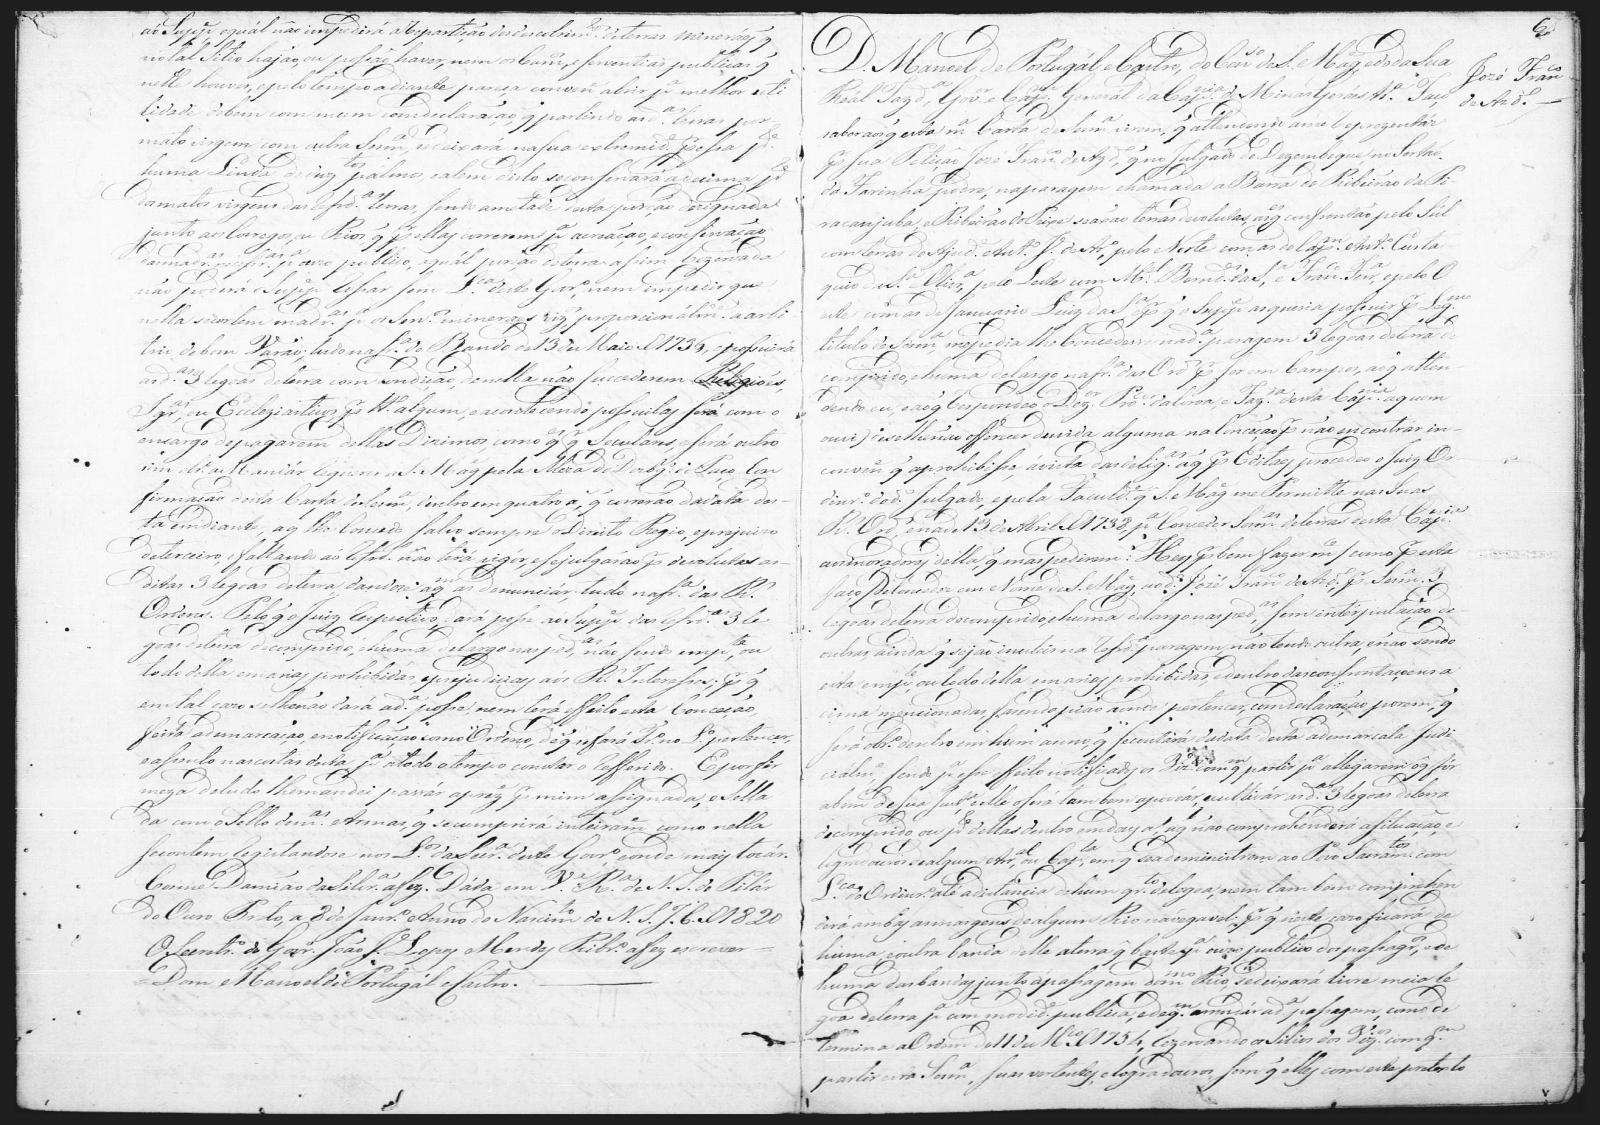 ao Supp.e o qual não impedirá a repartição dos descobrim.tos de terras mineraes q
no tal Sitio hajão, ou possão haver, nem os Cam.os, e serventias publicas q
nelle houver, e pelo tempo adiante pareça conven.te abrir p.a melhor uti
lidade do bem commum com declaração, q partindo as d.as terras por
mato virgem com outra Sesm.a, deixará na sua extremid.e p.a
huma Linda de palmos, e alem disto se conservará a decima p.te
dos matos virgens das refrd.as terras, sendo ametade desta porção designada
junto aos Corregos, ou Rios q p ellas correrem p.a creação, e conservação
das madr.as p.a uzo publico, a qual porção de terra assim rezervada
não poderá o Supp.e roçar sem L.ca deste Gov.o, nem impedir que
nella se cortem madr.as p.a os Serv.os mineraes proporcionalm.e a arbi
trio de bom Varão; tudo na fr.a do Bando de 13 de Maio de 1736, e possuirá
as d.as 3 legoas de terra com condição de nella não succederem Religiões,
Igr.as, ou Eccleziasticos p tt.o algum, e acontecendo possuilas será com o
encargo de pagarem dellas Dizimos como quaesq.r Seculares, e será outro
sim obr.o a mandar requerer a S. Mag.e pela Meza do Dezb.o do Paço Con
firmação desta Carta de Sesm.a, dentro em quatro an.s, q correrão da data des-
ta em diante, a q.l lhe concedo salvo sempre o Direito Regio, e prejuizo
de terceiro, e faltando ao refrd.o não terá vigor, e se julgarão p devolutas as
ditas 3 legoas de terra, dandose a q.m as denunciar, tudo na fr.a das R.s
Ordens. Pelo q o Juiz respectivo, dará posse ao Supp.e das refrd.as 3 le
goas de terra de comprido, e huma de largo nas ped.as, não sendo em p.te, ou
todo della em areas prohibidas, e prejudiciaes aos R.s Interesses; p q
em tal cazo se lhe não dará a d.a posse, nem terá effeito esta Conceção,
feita a demarcação, e notificação como Ordeno, de q se fará Tr.o no L.o pertencer,
e assento nas costas desta p.a a todo o tempo constar o refferido. E por fir
meza de tudo lhe mandei passar a prez.e p mim assignada, e Sella
da com o Sello de m.as Armas, q se cumprirá inteiram.e como nella
se contem registandose nos L.os da Secr.a deste Gov.o, e onde mais tocar.
Cosme Damião da Silv.a a fez. Dada em V.a R.a de N. S. do Pilar
do Ouro Preto, a 8 de Janr.o Anno do Nascim.to de N. S. J. C. de 1820
O Secretr.o do Gov.o João J.e Lopes Mendes Ribr.o a fez escrever =
= Dom Manoel de Portugal e Castro. ———
6
Jozé Fran.co
de And.e —
D. Manoel de Portugal, e Castro, do Cons.o de S. Mag.e, e da Sua
Real Faz.da, Gov.or e Cap.m General da Cap.nia de Minas Geraes &.a Faço
saber aos q esta m.a Carta de Sesm.a virem, q attendendo a me reprezentar
p sua Petição Jozé Fran.co de And.e, q no Julgado do Dezemboque no Sertão
da Farinha podre, na paragem chamada a Barra do Ribeirão da Pi
racanjuba, e Ribeirão do Peixe se achão terras devolutas, as q.es confrontão pelo Sul
com terras do Ajud.e Ant.o J.e de Ar.o, pelo Norte com as do Cap.m Ant.o Eusta
quio da S.a e Olivr.a, pelo Leste com M.el Bernd.es da S.a, e Fran.co Ferr.a, e pelo O
este com as de Januario Luiz da S.a, e p q o Supp.e as queria possuir p Legitimo
titulo de Sesm.a me pedia lhe Concedesse na d.a paragem 3 legoas de terra de
comprido, e huma de largo na fr.a das Ord.s p serem Campos, ao q atten-
dendo eu, e ao q respondeo o Dez.or Pro.or da Coroa, e Faz.da desta Cap.nia a quem
ouvi / e se lhe não offerecer duvida alguma na Conceção p não encontrar in-
conven.e q a prohibisse, á vista das delig.as a q p Editaes procedeo o Juiz Or
dinr.o do d.o Julgado, e pela Faculd.e q S. Mag.e me Permitte nas suas
R.s Ord.s e na de 13 de Abril de 1738 p.a Conceder Sesm.as de terras desta Cap.nia
aos moradores della q mas pedirem: Hey p bem fazer m.ce / como p esta
faço / de Conceder em Nome de S. Mag.e, ao d.o Jozé Fran.co de And.e p Sesm.a 3
legoas de terra de comprido, e huma de largo nas ped.as, sem interpolação de
outras, ainda q sejão inuteis na refrd.a paragem, não tendo outra, e não sendo
esta em p.te, ou todo della em areas prohibidas, e dentro das confrontaçoens a
cima mencionadas fazendo pião aonde pertencer, com declaração porem, q
será obr.o dentro em hum anno, q se contará da data desta a demarcala Judi
cialm.e, sendo p.a esse effeito notificados os Viz.os com q.m partir p.a allegarem o q for
a bem de sua Just.a e elle o será tambem a povoar, e cultivar as d.as 3 legoas de terra
de comprido ou p.te dellas dentro em dous an.s, a q.l não comprehenderá a situação, e
logradouros de algum Arr.al, ou Cap.la, em q se administram ao Povo Sacram.tos com
L.ca do Ordinr.o até a distancia de hum qr.to de legoa, nem tambem comprehen
derá ambas as margens de algum Rio navegavel: p q neste cazo ficará de
huma, e outra banda delle a terra q baste p.a o uzo publico dos passagr.os, e de
huma das bandas junto á passagem do m.mo Rio, se deixará livre meia le
goa de terra p.a commodid.e publica, e de q.m arrendar a d.a passagem, como de
termina a Ordem de 11 de M.ço de 1754, rezervando os Sitios dos Viz.os com q.m
partir esta Sesm.a, suas vertentes, e logradouros, sem q elles com este pretexto